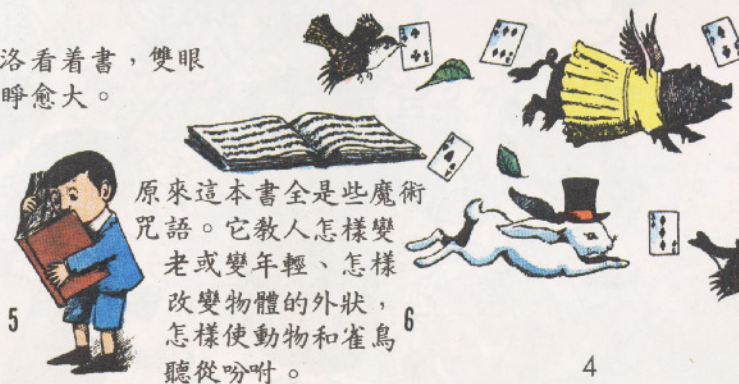 洛看着書，雙眼
睜愈大。
原來這本書全是些魔術
咒語。它教人怎樣變
老或變年輕、怎樣
改變物體的外狀，
怎樣使動物和雀鳥
聽從吩咐。
5
6
4